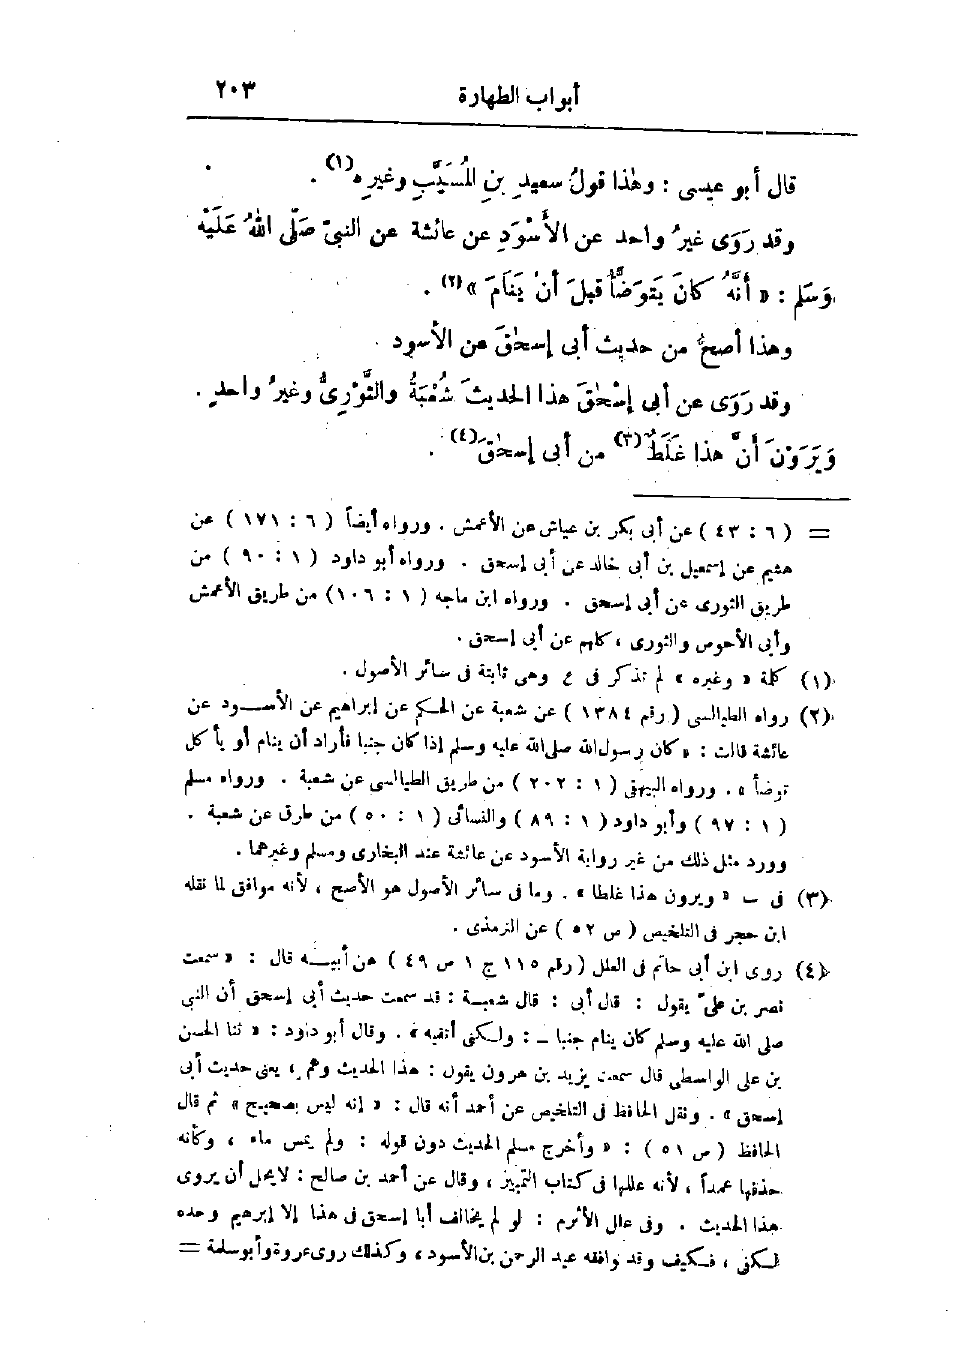 أبواب الطهارة ٢٠٣
قال أبو عيسى : وهٰذا قولُ سعيدِ بنِ المُسَيَّبِ وغيرِه (١) .
وقد رَوَى غيرُ واحد عن الأَسْوَدِ عن عائشة عن النبيّ صَلَّى اللهُ عَلَيْه
وَسَلم : « أَنَّهُ كانَ يَتوَضَّأُ قبلَ أنْ يَنَامَ » (٢) .
وهذا أصحُّ من حديث أبى إسحٰقَ عن الأسود
وقد رَوَى عن أبى إسْحٰقَ هذا الحديثَ شُعْبَةُ والثَّوْرِىُّ وغيرُ واحدٍ .
وَيَرَوْنَ أنَّ هذا غَلَطٌ (٣) من أبى إسحٰقَ (٤) .
= ( ٦ : ٤٣ ) عن أبى بكر بن عياش عن الأعمش . ورواه أيضاً ( ٦ : ١٧١ ) عن
هشيم عن إسمعيل بن أبى خالد عن أبى إسحق . ورواه أبو داود ( ١ : ٩٠ ) من
طريق الثورى عن أبى إسحق . ورواه ابن ماجه ( ١ : ١٠٦ ) من طريق الأعمش
وأبى الأحوص والثورى ، كلهم عن أبى إسحق .
(١) كلمة « وغيره » لم تذكر فى ع وهى ثابتة فى سائر الأصول .
(٢) رواه الطيالسى ( رقم ١٣٨٤ ) عن شعبة عن الحكم عن إبراهيم عن الأسود عن
عائشة قالت : « كان رسول الله صلى الله عليه وسلم إذا كان جنبا فأراد أن ينام أو يأكل
توضأ » . ورواه البيهقى ( ١ : ٢٠٢ ) من طريق الطيالسى عن شعبة . ورواه مسلم
( ١ : ٩٧ ) وأبو داود ( ١ : ٨٩ ) والنسائى ( ١ : ٥٠ ) من طرق عن شعبة .
وورد مثل ذلك من غير رواية الأسود عن عائشة عند البخارى ومسلم وغيرهما .
(٣) فى ب « ويرون هذا غلطا » . وما فى سائر الأصول هو الأصح ، لأنه موافق لما نقله
ابن حجر فى التلخيص ( ص ٥٢ ) عن الترمذى .
(٤) روى ابن أبى حاتم فى العلل ( رقم ١١٥ ج ١ ص ٤٩ ) عن أبيه قال : « سمعت
نصر بن علىّ يقول : قال أبى : قال شعبة : قد سمعت حديث أبى إسحق أن النبى
صلى الله عليه وسلم كان ينام جنبا - : ولكنى أتقيه » . وقال أبو داود : « ثنا الحسن
بن على الواسطى قال سمعت يزيد بن هرون يقول : هذا الحديث وهم ، يعنى حديث أبى
إسحق » . ونقل الحافظ فى التلخيص عن أحمد أنه قال : « إنه ليس بصحيح » ثم قال
الحافظ ( ص ٥١ ) : « وأخرج مسلم الحديث دون قوله : ولم يمس ماء ، وكأنه
حذفها عمداً ، لأنه عللها فى كتاب التمييز ، وقال عن أحمد بن صالح : لا يحل أن يروى
هذا الحديث . وفى علل الأثرم : لو لم يخالف أبا إسحق فى هذا إلا إبراهيم وحده
لكفى ، فكيف وقد وافقه عبد الرحمن بن الأسود ، وكذلك روى عروة وأبو سلمة =